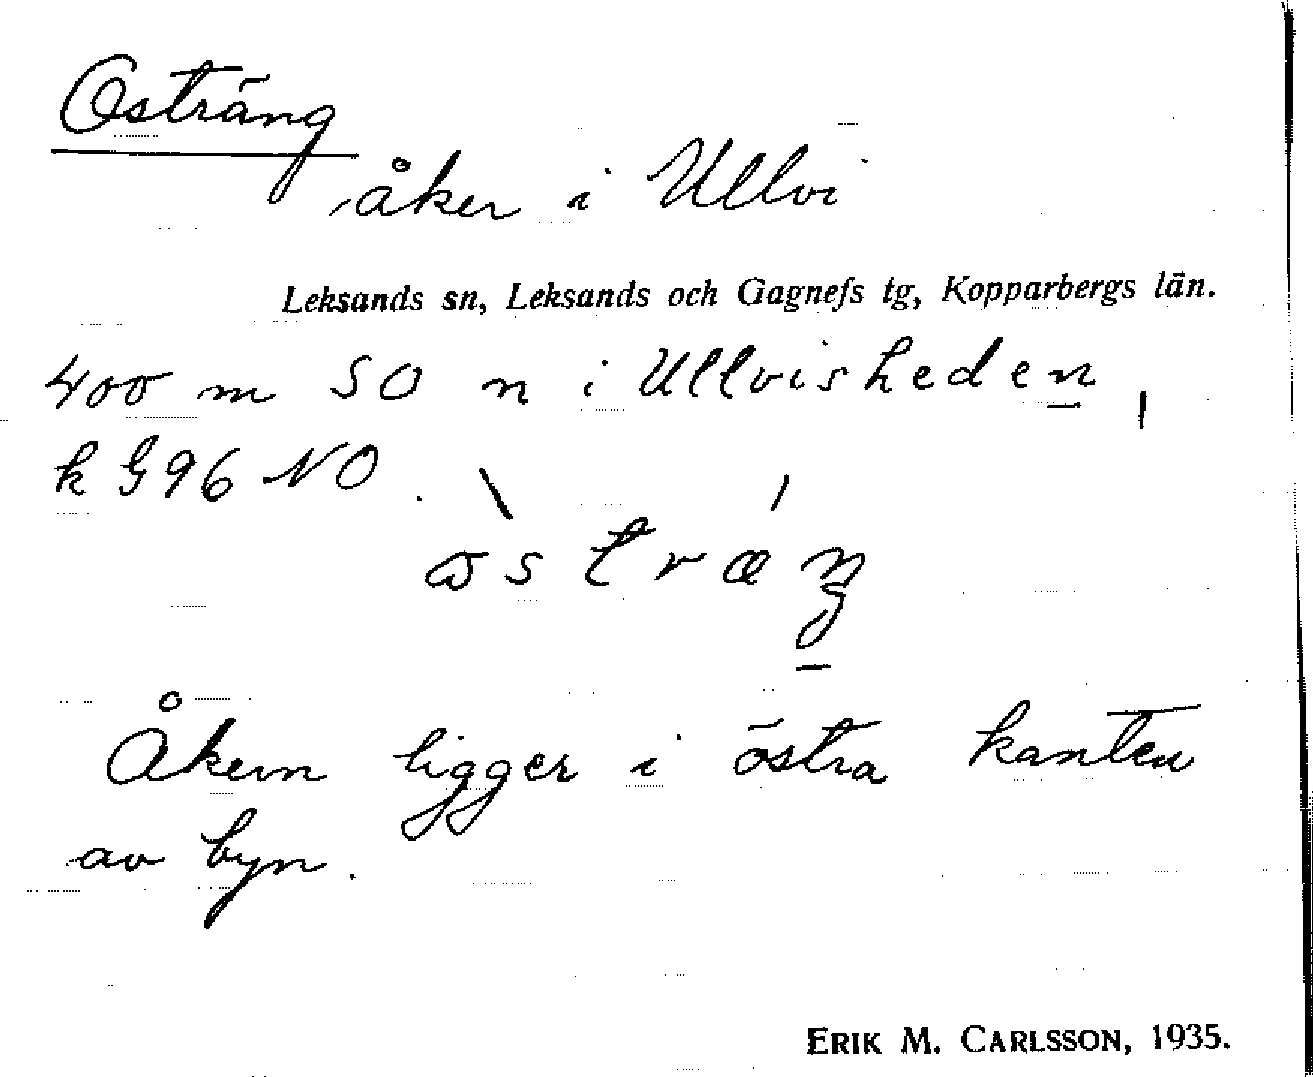 Osträng
åker i Ullvi
Leksands sn, Leksands och Gagnefs tg, Kopparbergs län.
400 m SO n i Ullvisheden,
k G96 NO.
Åkern ligger i östra kanten
av byn.
ERIK M. CARLSSON, 1935.